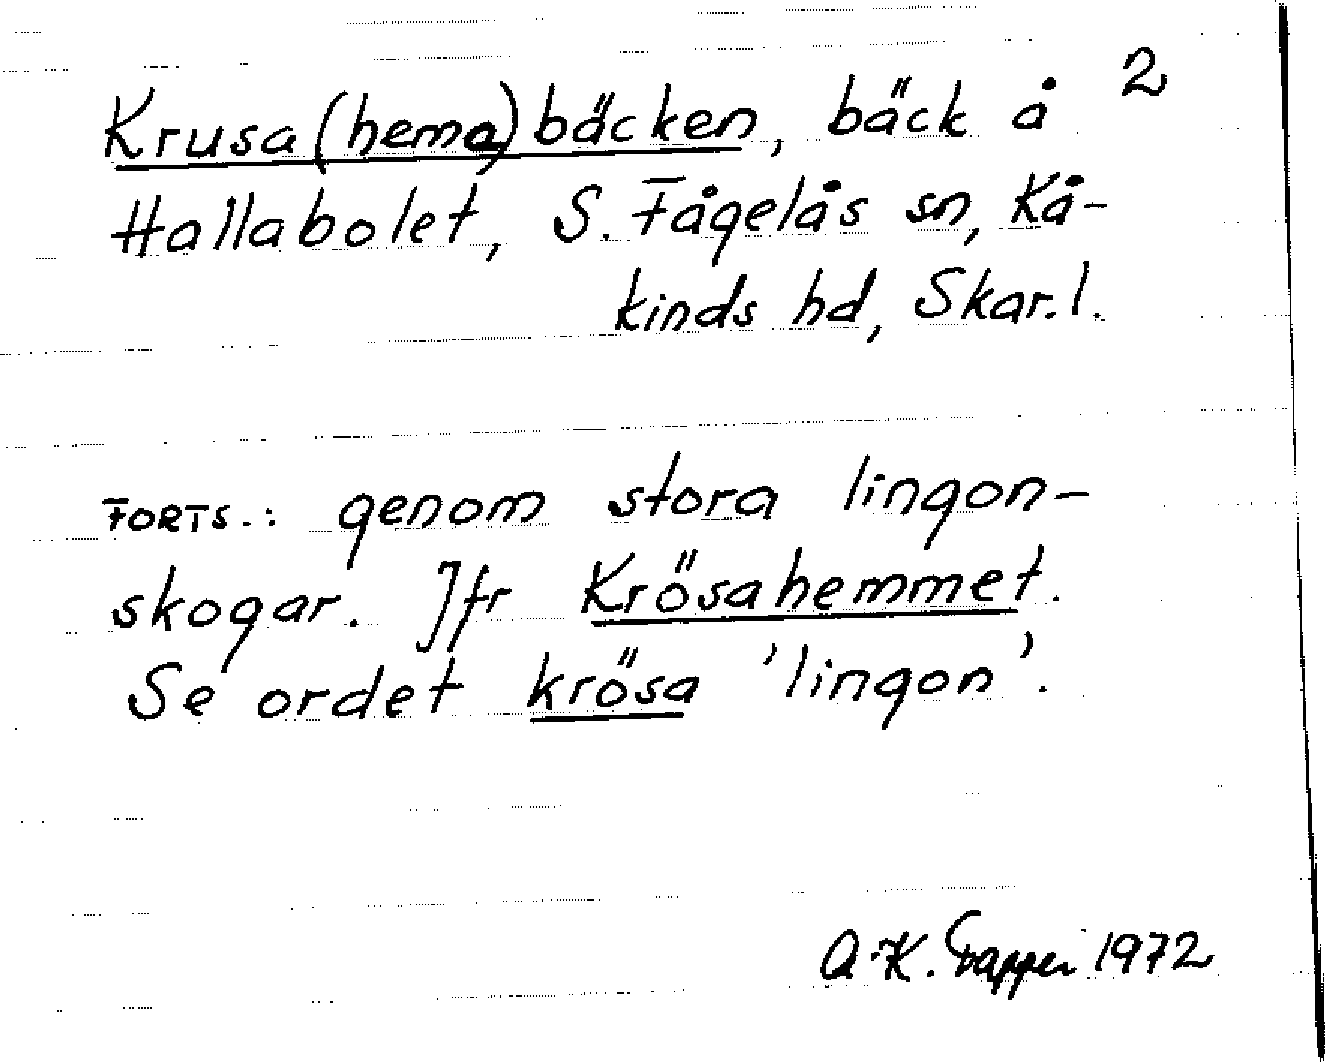 Krusa(hema)bäcken, bäck å 2
Hallabolet, S. Fågelås sn, Kå-
kinds hd, Skar.l.
FORTS.: genom stora lingon-
skogar. Jfr Krösahemmet.
Se ordet krösa 'lingon'.
A-K. 1972